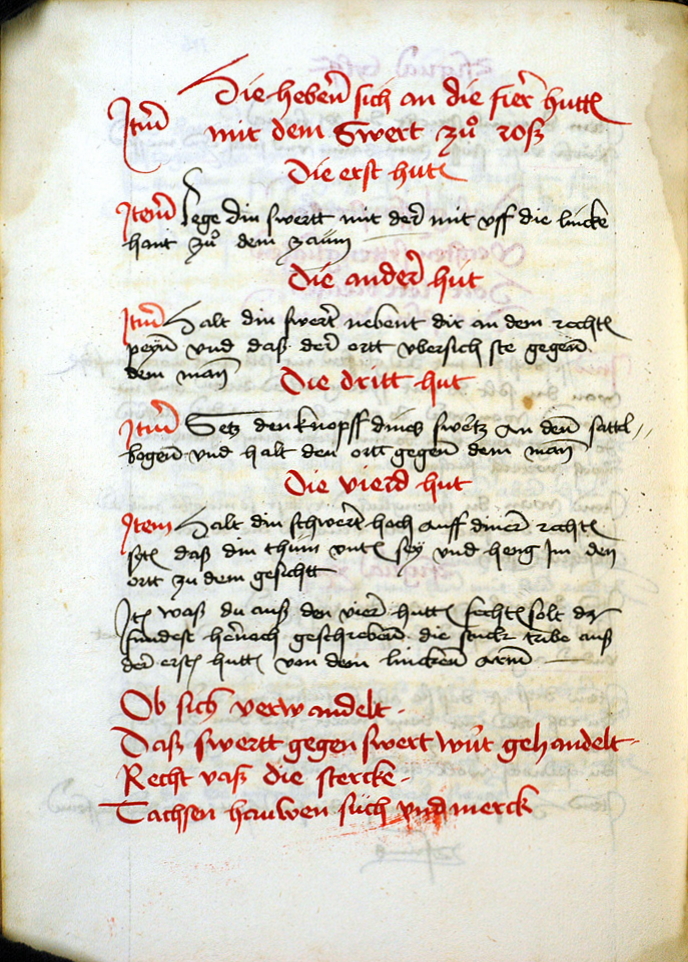 Die hebenn sich an die fier hutten
Item mit dem Swert zů roß
Die erst hutt
Item Lege din swertt mit der mit vff die lincke
hant zů dem zaum
Die ander hut
Item Halt din swert nebent dir an dem rechten
peyn vnd daß der ortt vbersich ste gegen
dem man
Die dritt hut
Item Setz den knopff dines swertz an den sattel
bogen vnd halt den ortt gegen dem man
Die vierd hut
Item Halt din schwert hoch auff diner rechten
syten daß din thům vnten sey vnd heng Im den
ortt zu dem gesichtt
Item waß du auß den vier hutten fechten solt daz
fundest hernach geschriben die stuck tribe auß
der ersten hutten von dem lincken arm
Ob sich verwandelt
Daß swertt gegen swert wirt gehandelt
Recht vaß die stercke
Tachsen hauwen such vnd merck